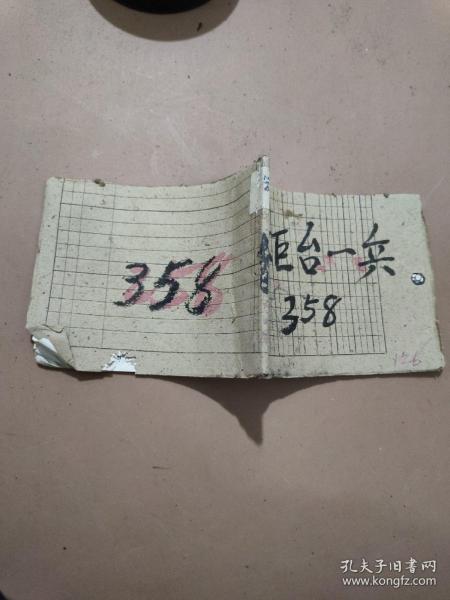 358
柜台一兵
358
126
孔夫子旧书网
www.kongfz.com